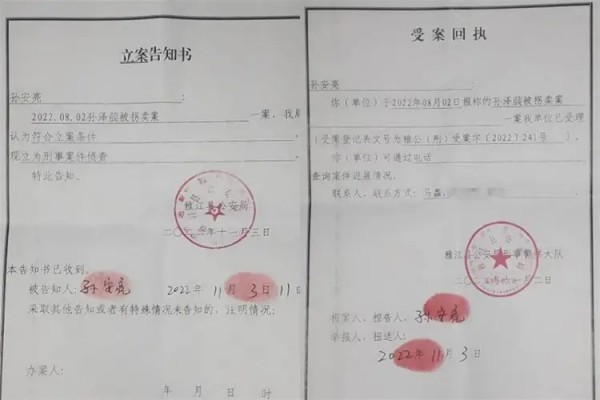 立案告知书
孙安亮：
2022.08.02孙泽燚被拐卖案一案，我局
认为符合立案条件
现立为刑事案件侦查
特此告知。
雅江县公安局
二〇二二年十一月三日
本告知书已收到。
被告知人：孙安亮 2022年11月3日11日
采取其他告知或者有特殊情况未告知的，注明情况：
办案人：
年 月 日 时
受案回执
孙安亮：
你（单位）于2022年08月02日报称的孙泽燚被拐卖案
一案我单位已受理
（受案登记表文号为雅公（刑）受案字〔2022〕241号）。
你（单位）可通过电话
查询案件进展情况。
联系人、联系方式：马磊，
雅江县公安局刑事警察大队
报案人、控告人、孙安亮
举报人、扭送人：
2022年11月3日